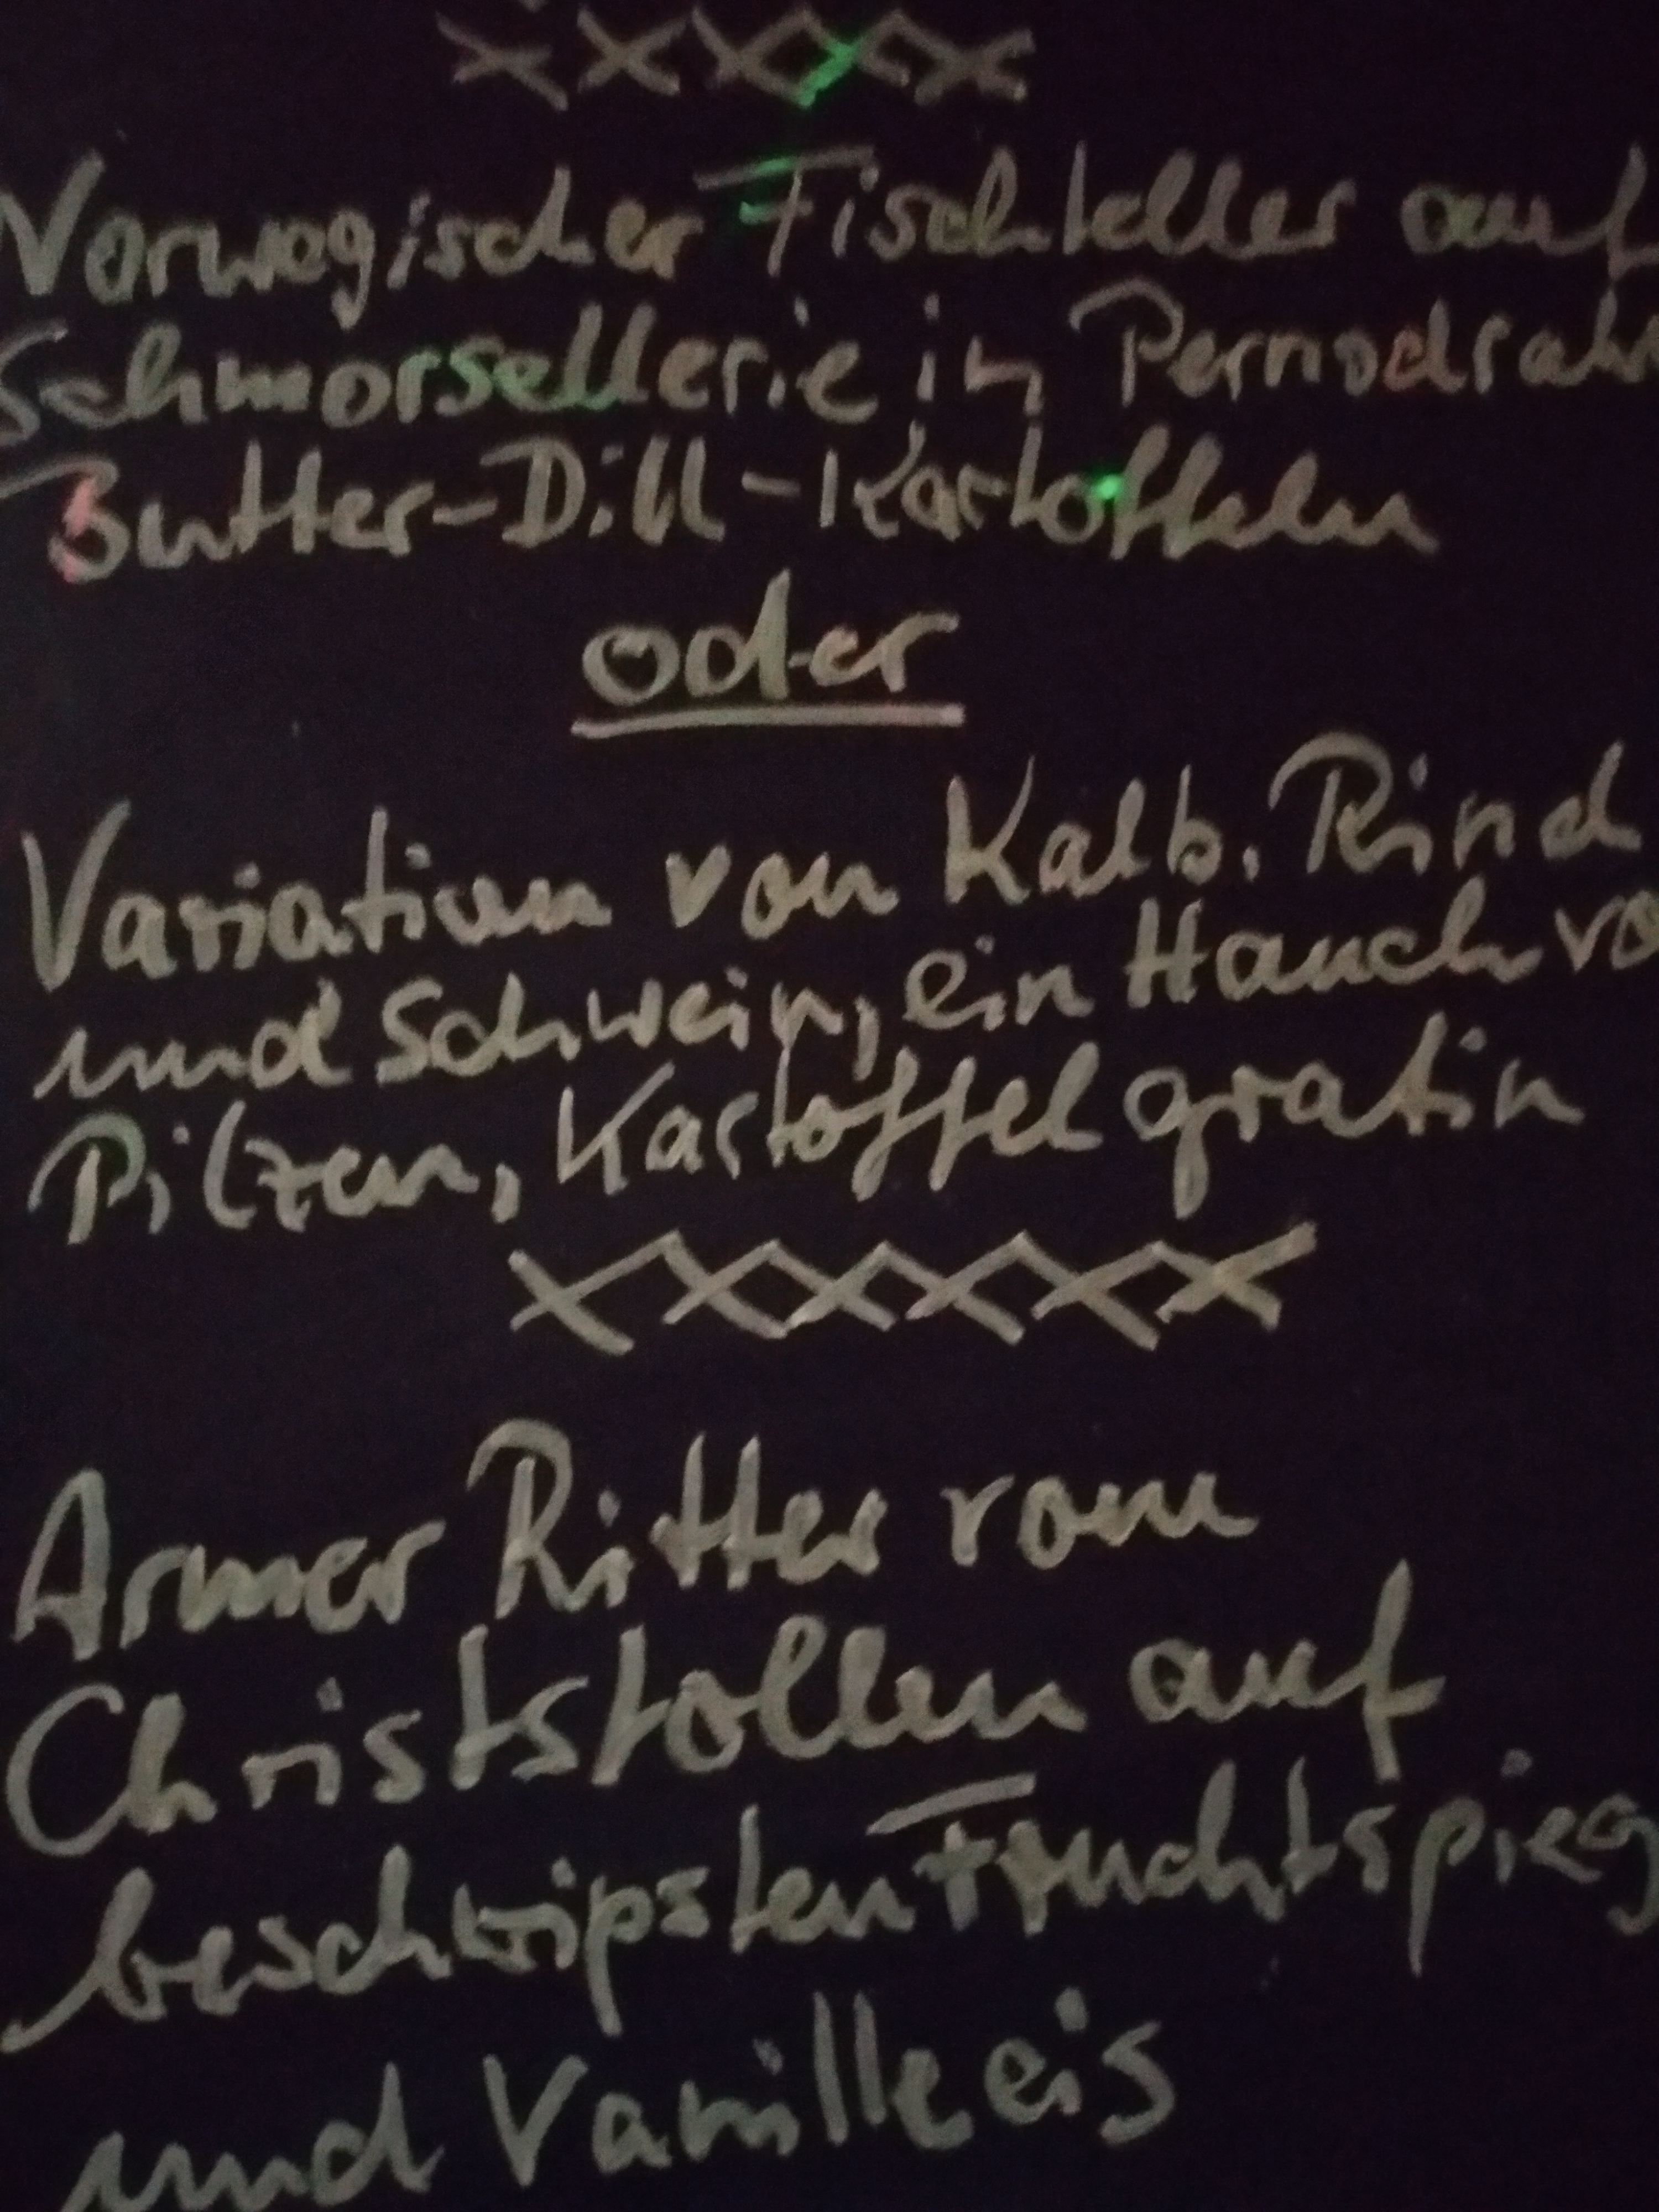 xxxxx
Norwegischer Fischteller auf
Schmorsellerie in Pernodrah
Butter-Dill-Kartoffeln
oder
Variation von Kalb, Rind
und Schwein, ein Hauch vo
Pilzen, Kartoffelgratin
xxxxxx
Armer Ritter vom
Christstollen auf
beschwipsten Fruchtspieg
und Vanilleeis